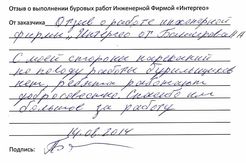 Отзыв о выполнении буровых работ Инженерной Фирмой «Интергео»
От заказчика Отзыв о работе инженерной
фирмы „Интергео" от
С моей стороны нареканий
по поводу работы бурильщиков
нет, ребята работают
добросовестно. Спасибо им
большое за работу
14.08.2014
Подпись: